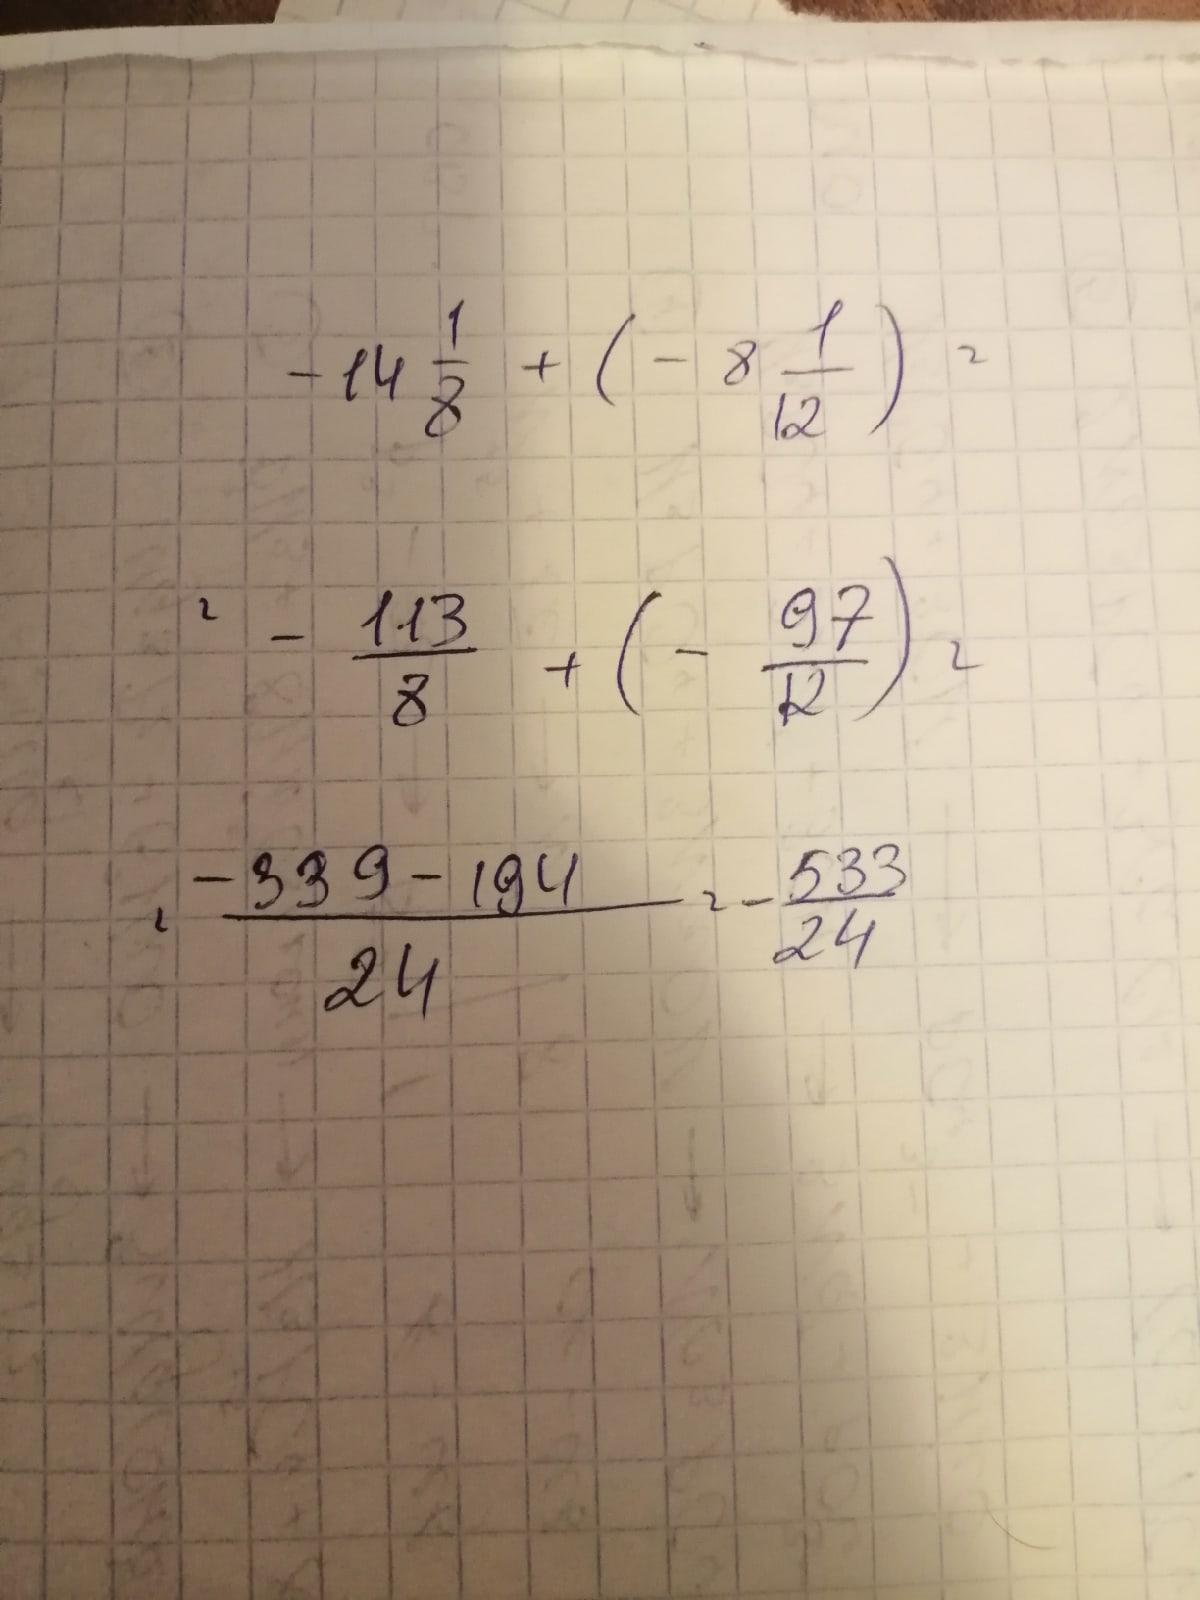 -14 1/8 + (- 8 1/12) =
= - 113/8 + (- 97/12) =
= -339-194/24 = - 533/24